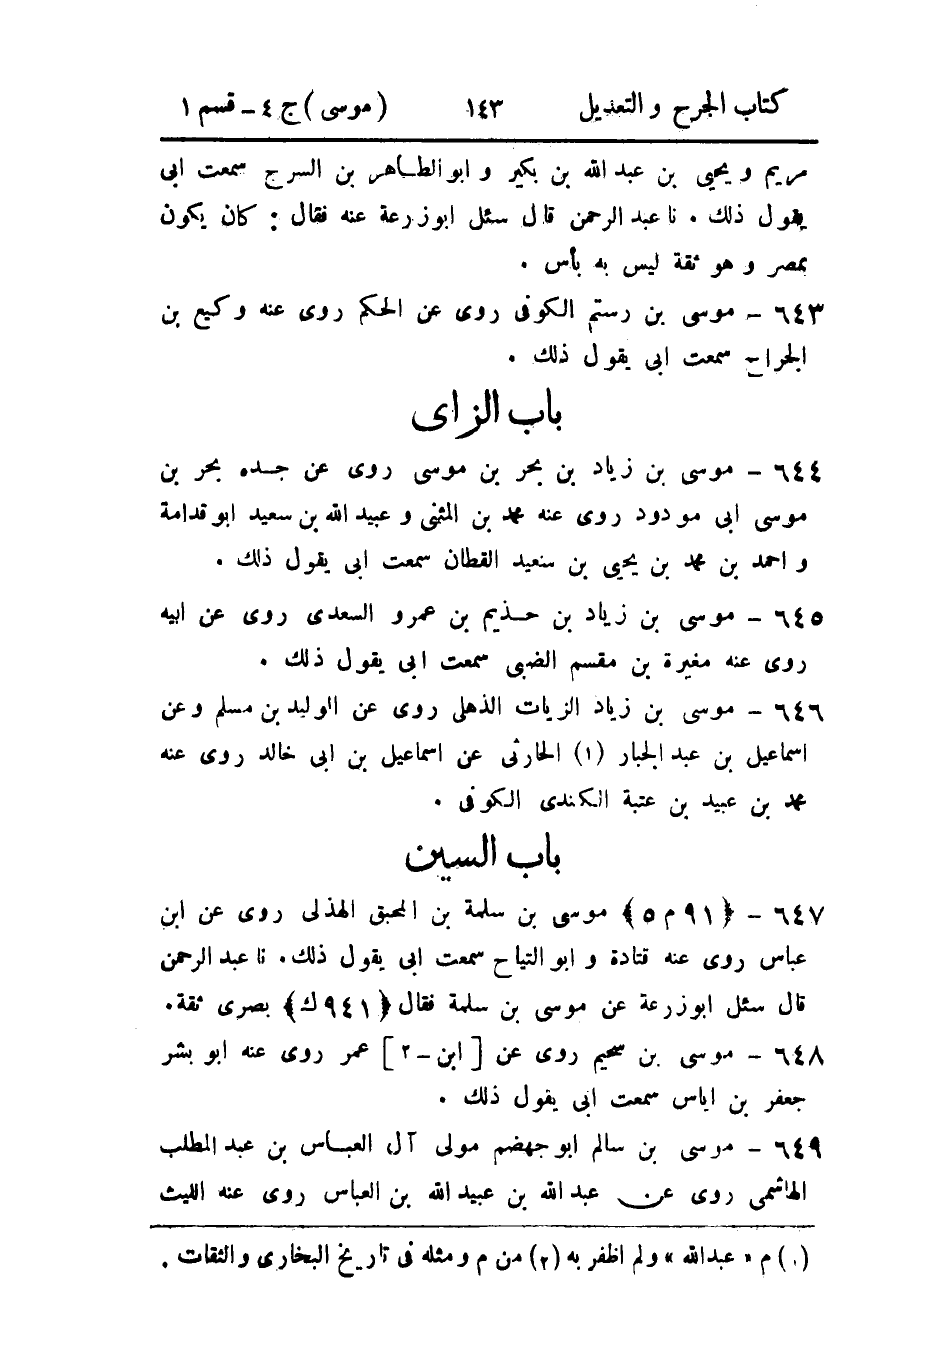 كتاب الجرح و التعديل ١٤٣ (موسى) ج ٤ - قسم ١
مريم و يحيى بن عبد الله بن بكير و ابو الطاهر بن السرج سمعت ابى
يقول ذلك . نا عبد الرحمن قال سئل ابو زرعة عنه فقال : كان يكون
بمصر و هو ثقة ليس به بأس .
٦٤٣ - موسى بن رستم الكوفى روى عن الحكم روى عنه وكيع بن
الجراح سمعت ابى يقول ذلك .
باب الزاى
٦٤٤ - موسى بن زياد بن بحر بن موسى روى عن جده بحر بن
موسى ابى مودود روى عنه محمد بن المثنى و عبيد الله بن سعيد ابو قدامة
و احمد بن محمد بن يحيى بن سعيد القطان سمعت ابى يقول ذلك .
٦٤٥ - موسى بن زياد بن حذيم بن عمرو السعدى روى عن ابيه
روى عنه مغيرة بن مقسم الضبى سمعت ابى يقول ذلك .
٦٤٦ - موسى بن زياد الزيات الذهلى روى عن الوليد بن مسلم وعن
اسماعيل بن عبد الجبار (١) الحارثى عن اسماعيل بن ابى خالد روى عنه
محمد بن عبيد بن عتبة الكندى الكوفى .
باب السين
٦٤٧ - ﴿٩١ م ٥﴾ موسى بن سلمة بن المحبق الهذلى روى عن ابن
عباس روى عنه قتادة و ابو التياح سمعت ابى يقول ذلك . نا عبد الرحمن
قال سئل ابو زرعة عن موسى بن سلمة فقال ﴿٩٤١ ك﴾ بصرى ثقة .
٦٤٨ - موسى بن سحيم روى عن [ابن - ٢] عمر روى عنه ابو بشر
جعفر بن اياس سمعت ابى يقول ذلك .
٦٤٩ - موسى بن سالم ابو جهضم مولى آل العباس بن عبد المطلب
الهاشمى روى عن عبد الله بن عبيد الله بن العباس روى عنه الليث
(١) م « عبدالله » ولم اظفر به (٢) من م و مثله فى تاريخ البخارى والثقات .